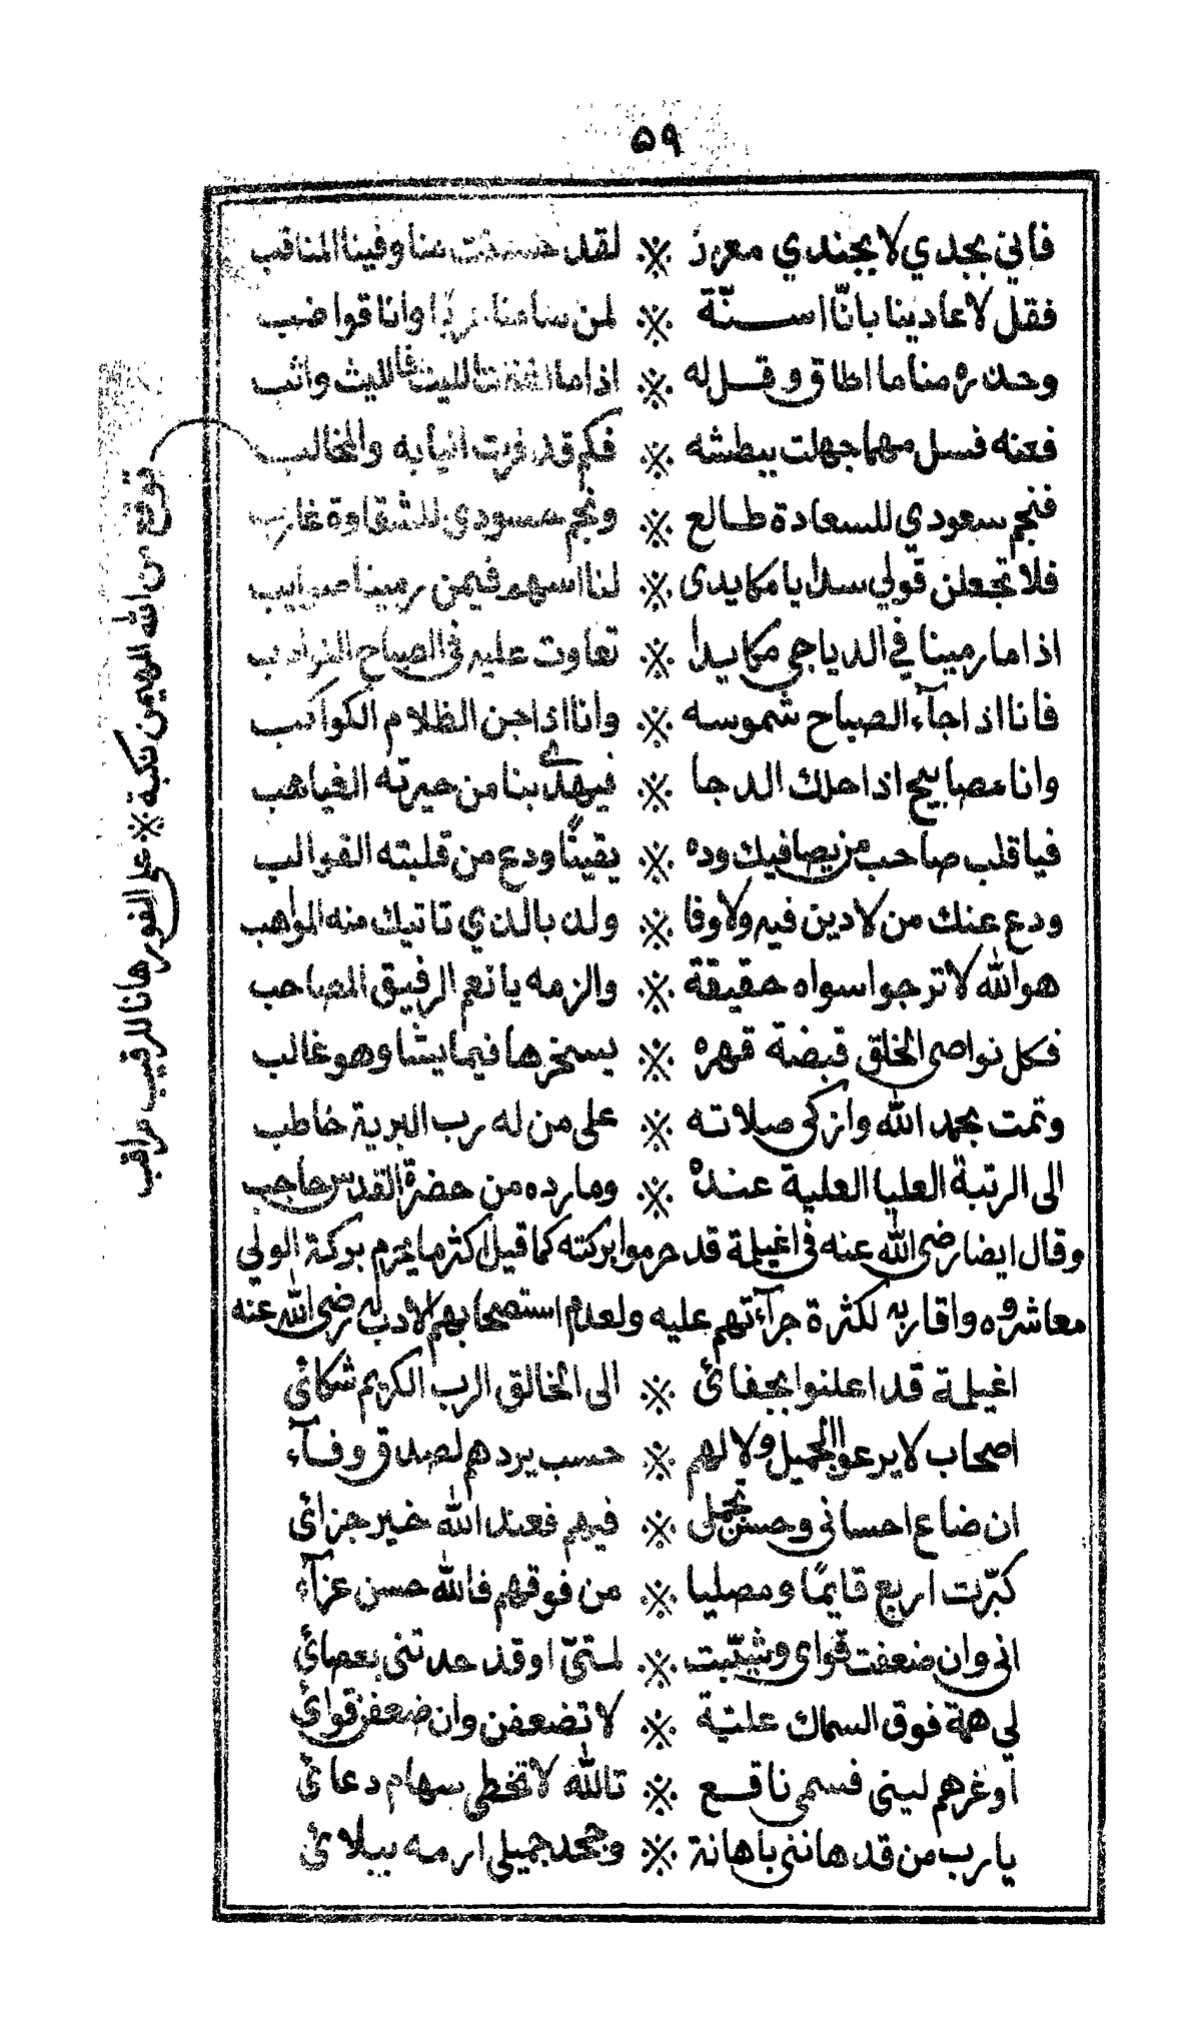 ٥٩
فاني بجدي لا بجندي معزز ※ لقد حسنت منا وفينا المناقب
فقل لاعادينا بانّا اسنّة ※ لمن سامنا وانا قواضب
وحذره منا ما اطاق وقل له ※ اذا ما الليث فالليث واثب
فعنه فسل مهما جهلت ببطشه ※ فكم قد فرت انيابه والمخالب
فنجم سعودي للسعادة طالع ※ ونجم حسودي للشقاوة غارب
فلا تجعلن قولي سدا يا مكايدى ※ لنا اسهم فيمن رمينا صوايب
اذا ما رمينا في الدياجي مكايدا ※ تعاوت عليه فى الصباح النوادب
فانا اذا جآء الصباح شموسه ※ وانا اذا جن الظلام الكواكب
وانا مصابيح اذا حلك الدجا ※ فيهدى بنا من حيرته الغياهب
فيا قلب صاحب من يصافيك وده ※ يقينًا ودع من قلبته القوالب
ودع عنك من لا دين فيه ولا وفا ※ ولذ بالذي تاتيك منه المواهب
هو الله لا ترجوا سواه حقيقة ※ والزمه يا نعم الرفيق المصاحب
فكل نواصى الخلق قبضة قهره ※ يسخرها فيما يشا وهو غالب
وتمت بحمد الله وازكى صلاته ※ على من له رب البرية خاطب
الى الرتبة العليا العلية عنده ※ وما رده من حضرة القدس حاجب
وقال ايضا رضى الله عنه فى اغيلمة قد حرموا بركته كما قيل اكثر ما يحرم بركة الولي
معاشروه واقاربه لكثرة جرآءتهم عليه ولعدم استصحابهم الادب له رضى الله عنه
اغيلمة قد اعلنوا بجفائى ※ الى الخالق الرب الكريم شكائى
اصحاب لا يرعوا الجميل ولا لهم ※ حسب يردهم لصدق وفآء
ان ضاع احسانى وحسن تجملى ※ فيهم فعند الله خير جزائى
كبّرت اربع قايمًا ومصليا ※ من فوقهم فالله حسن عزآء
انى وان ضعفت قواى وشيّبت ※ لمتىّ اوقد حدتنى بعصائى
لي همة فوق السماك عليّة ※ لا تضعفن وان ضعفن قوائى
اوغرهم لينى فسمى ناقع ※ تالله لا تخطى سهام دعائى
يا رب من قد هاننى باهانة ※ وجحد جميلى ارمه ببلائى
توقع من الله المهيمن نكبة ※ على الفور هانا للرقيب مراقب